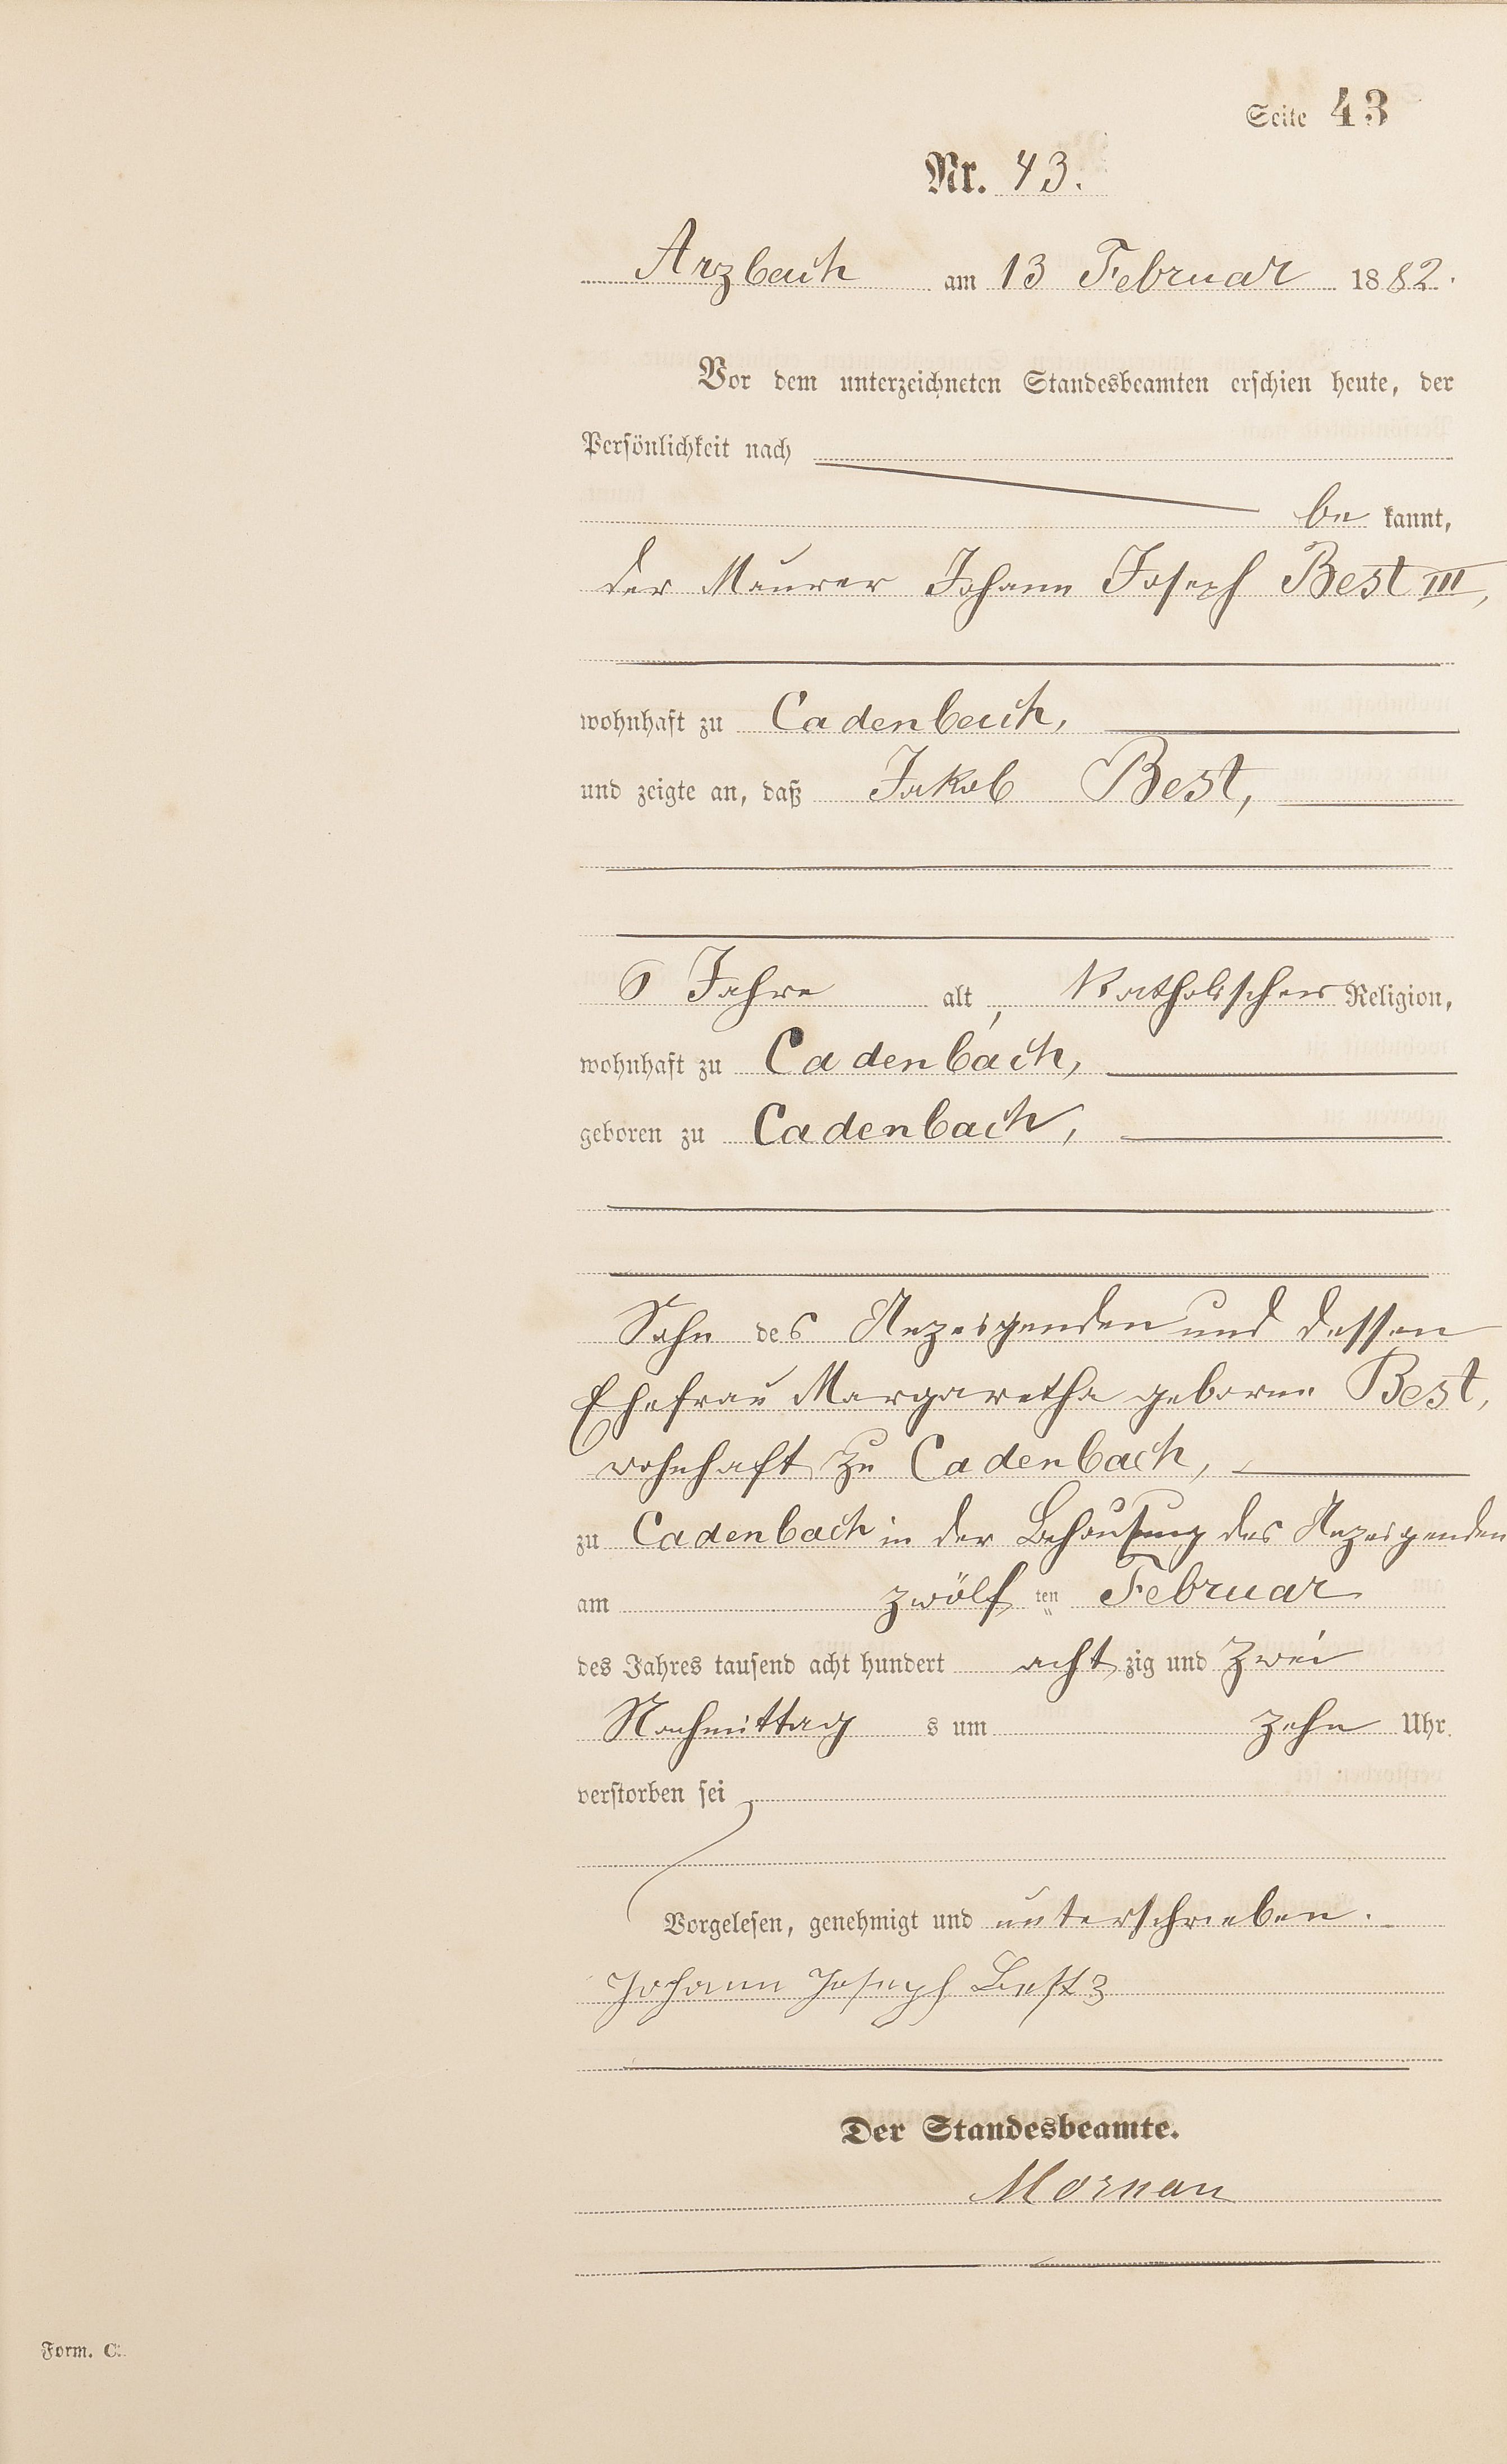 Seite 43
Nr. 43.
Arzbach am 13 Februar 1882.
Vor dem unterzeichneten Standesbeamten erschien heute, der
Persönlichkeit nach
be kannt,
der Maurer Johann Joseph Best III,
wohnhaft zu Cadenbach,
und zeigte an, daß Jakob Best,
6 Jahre alt, katholischer Religion,
wohnhaft zu Cadenbach,
geboren zu Cadenbach,
Sohn des Anzeigenden und dessen
Ehefrau Margaretha geborne Best,
wohnhaft zu Cadenbach,
zu Cadenbach in der Behausung des Anzeigenden
am zwölf ten Februar
des Jahres tausend acht hundert acht zig und zwei
Nachmittag s um zehn Uhr
verstorben sei
Vorgelesen, genehmigt und unterschrieben.
Johann Joseph Best 3
Der Standesbeamte.
Form. C.